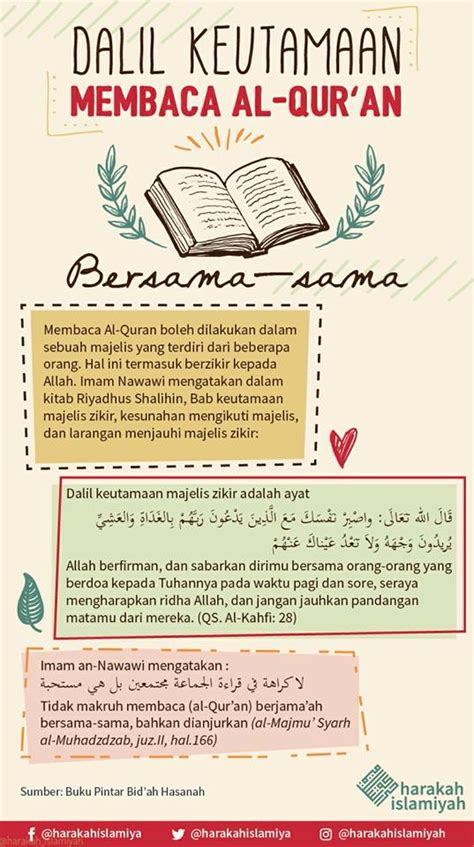 DALIL KEUTAMAAN
MEMBACA AL-QUR'AN
Bersama-sama
Membaca Al-Quran boleh dilakukan dalam
sebuah majelis yang terdiri dari beberapa
orang. Hal ini termasuk berzikir kepada
Allah. Imam Nawawi mengatakan dalam
kitab Riyadhus Shalihin, Bab keutamaan
majelis zikir, kesunahan mengikuti majelis,
dan larangan menjauhi majelis zikir:
Dalil keutamaan majelis zikir adalah ayat
قَالَ الله تَعَالَى: وَاصْبِرْ نَفْسَكَ مَعَ الَّذِينَ يَدْعُونَ رَبَّهُمْ بِالْغَدَاةِ وَالْعَشِيِّ
يُرِيدُونَ وَجْهَهُ وَلاَ تَعْدُ عَيْنَاكَ عَنْهُمْ
Allah berfirman, dan sabarkan dirimu bersama orang-orang yang
berdoa kepada Tuhannya pada waktu pagi dan sore, seraya
mengharapkan ridha Allah, dan jangan jauhkan pandangan
matamu dari mereka. (QS. Al-Kahfi: 28)
Imam an-Nawawi mengatakan :
لا كراهة في قراءة الجماعة مجتمعين بل هي مستحبة
Tidak makruh membaca (al-Qur'an) berjama'ah
bersama-sama, bahkan dianjurkan (al-Majmu' Syarh
al-Muhadzdzab, juz.II, hal.166)
Sumber: Buku Pintar Bid'ah Hasanah
harakah
islamiyah
@harakahislamiya @harakahislamiya @harakahislamiyah
@harakah_islamiyah